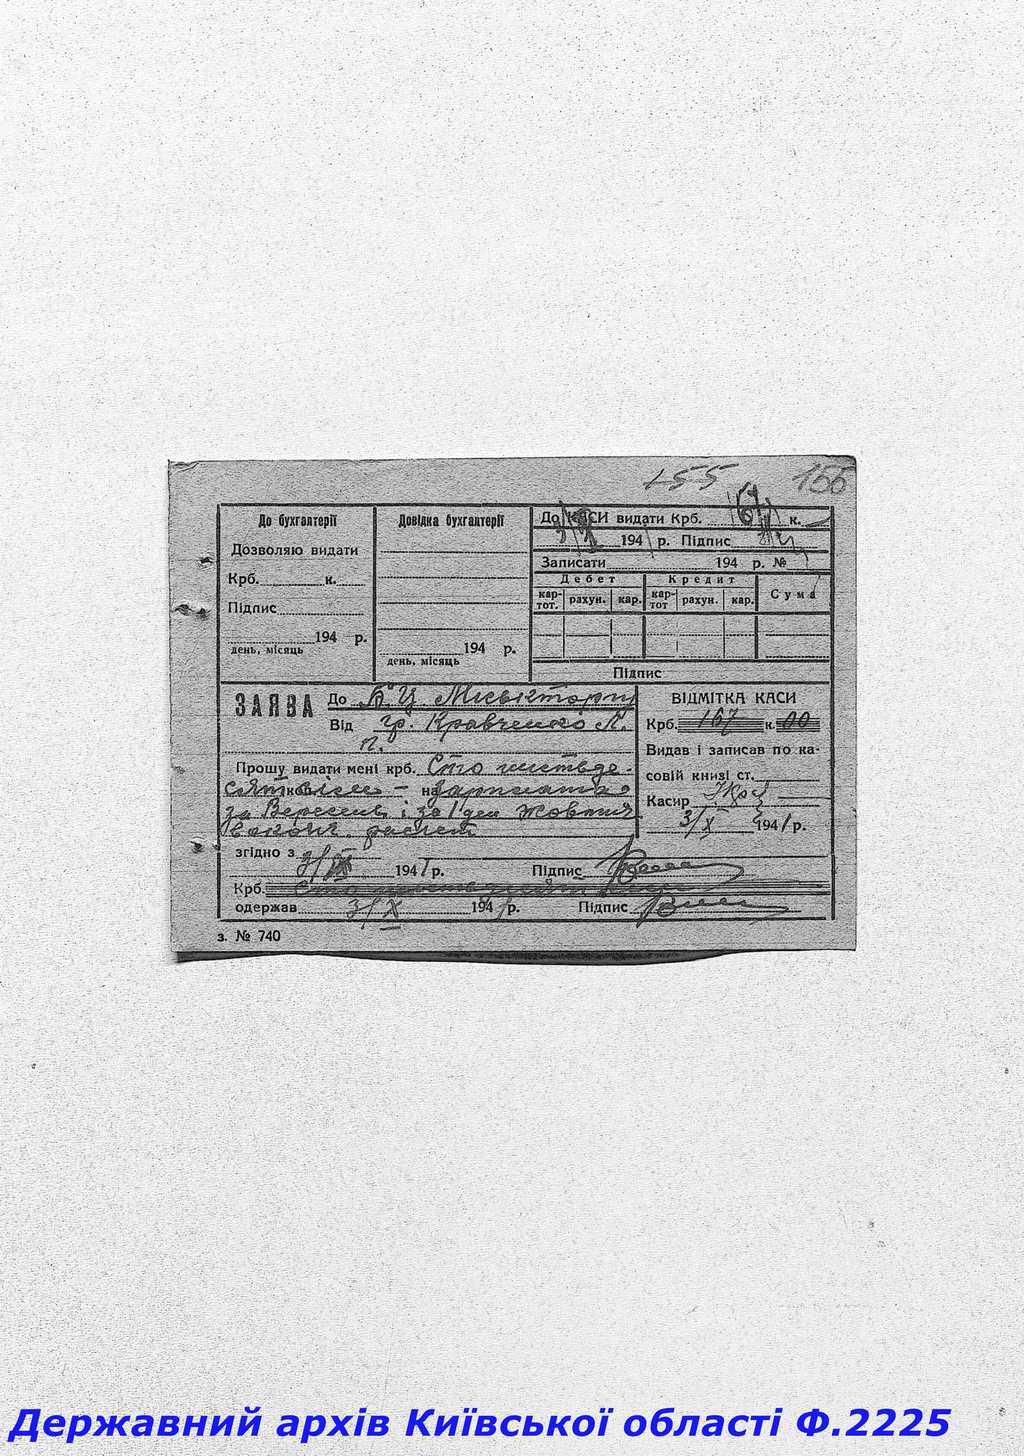 155 155
До бухгалтерії
Дозволяю видати
Крб. к.
Підпис
194 р.
день, місяць
Довідка бухгалтерії
194 р.
день, місяць
До КАСИ видати Крб. 167 к.
3/X 1941 р. Підпис
Записати 194 р. №
Дебет Кредит Сума
кар-тот. рахун. кар. кар-тот рахун. кар.
Підпис
ЗАЯВА До Б.Ц. Міськторгу
Від гр. Кравченко Л.
П.
Прошу видати мені крб. Сто шістьде-
сят сім – на зарплата
за Вересень і за 1 ден Жовтня
расчет
згідно з 3/X 1941 р. Підпис
Крб. Сто шістьдесят сім
одержав 3/X 1941 р. Підпис
ВІДМІТКА КАСИ
Крб. 167 к. 00
Видав і записав по ка-
совій книзі ст.
Касир
3/X 1941 р.
з. № 740
Державний архів Київської області Ф.2225